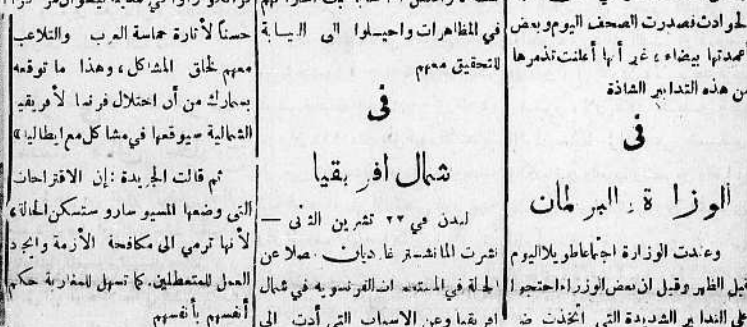 الحوادث فصدرت الصحف اليوم وبعض
اعمدتها بيضاء، غير أنها أعلنت تذمرها
من هذه التدابير الشاذة
فى
الوزارة والبرلمان
وعقدت الوزارة اجتماعا طويلا اليوم
قبل الظهر وقيل ان بعض الوزراء احتجوا
على التدابير الشديدة التي اتخذت ضد
في المظاهرات واحيلوا الى النيابة
للتحقيق معهم
فى
شمال افريقيا
لندن في ٢٢ تشرين الثنى —
نشرت المانشستر غارديان فصلا عن
الحالة في المستعمرات الفرنسوية في شمال
افريقيا وعن الاسباب التي أدت الى
حسناً لأثارة حماسة العرب والتلاعب
معهم لخلق المشاكل، وهذا ما توقعه
بسمارك من أن احتلال فرنسا لأفريقيا
الشمالية سيوقعها في مشاكل مع ايطاليا»
ثم قالت الجريدة: إن الاقتراحات
التى وضعها المسيو سارو ستسكن الحالة،
لأنها ترمي الى مكافحة الأزمة وايجاد
العمل للمتعطلين. كما تسهل للمغاربة حكم
أنفسهم بأنفسهم